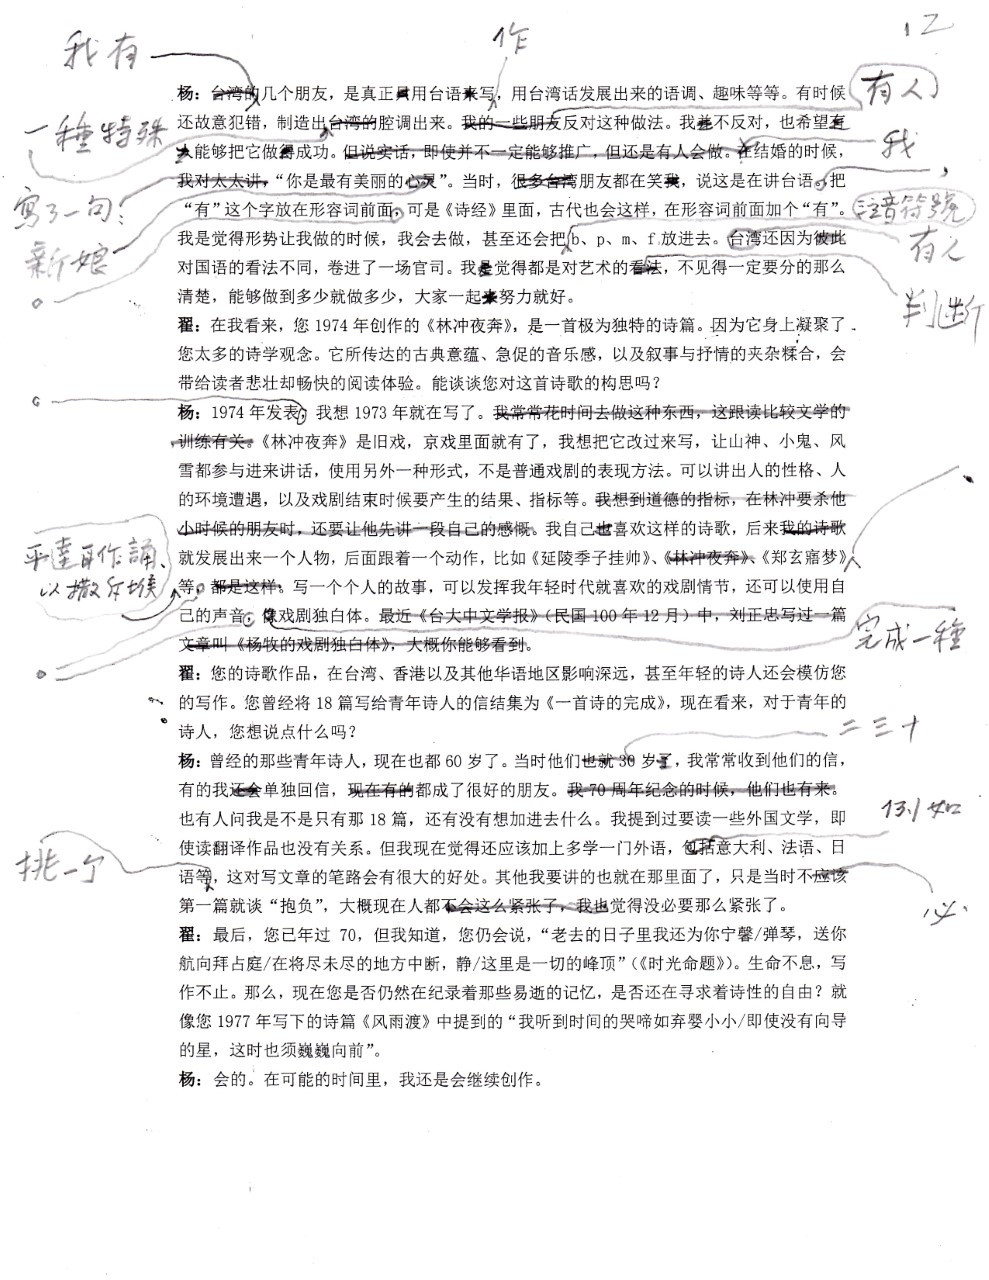 12
我有
作
有人
一種特殊
我
寫了一句：
新娘
注音符號
有人
判断
杨：台湾的几个朋友，是真正具用台语来写，用台湾话发展出来的语调、趣味等等。有时候
还故意犯错，制造出台湾的腔调出来。我的一些朋友反对这种做法。我并不反对，也希望有
人能够把它做得成功。但说实话，即使并不一定能够推广，但还是有人会做。在结婚的时候，
我对太太讲，“你是最有美丽的心灵”。当时，很多台湾朋友都在笑我，说这是在讲台语。把
“有”这个字放在形容词前面。可是《诗经》里面，古代也会这样，在形容词前面加个“有”。
我是觉得形势让我做的时候，我会去做，甚至还会把b、p、m、f放进去。台湾还因为彼此
对国语的看法不同，卷进了一场官司。我是觉得都是对艺术的看法，不见得一定要分的那么
清楚，能够做到多少就做多少，大家一起来努力就好。
翟：在我看来，您1974年创作的《林冲夜奔》，是一首极为独特的诗篇。因为它身上凝聚了
您太多的诗学观念。它所传达的古典意蕴、急促的音乐感，以及叙事与抒情的夹杂糅合，会
带给读者悲壮却畅快的阅读体验。能谈谈您对这首诗歌的构思吗？
杨：1974年发表，我想1973年就在写了。我常常花时间去做这种东西，这跟读比较文学的
训练有关。《林冲夜奔》是旧戏，京戏里面就有了，我想把它改过来写，让山神、小鬼、风
雪都参与进来讲话，使用另外一种形式，不是普通戏剧的表现方法。可以讲出人的性格、人
的环境遭遇，以及戏剧结束时候要产生的结果、指标等。我想到道德的指标，在林冲要杀他
小时候的朋友时，还要让他先讲一段自己的感慨。我自己也喜欢这样的诗歌，后来我的诗歌
就发展出来一个人物，后面跟着一个动作，比如《延陵季子挂帅》、《林冲夜奔》、《郑玄寤梦》
等。都是这样。写一个个人的故事，可以发挥我年轻时代就喜欢的戏剧情节，还可以使用自
己的声音。像戏剧独白体。最近《台大中文学报》（民国100年12月）中，刘正忠写过一篇
文章叫《杨牧的戏剧独白体》，大概你能够看到。
完成一種
翟：您的诗歌作品，在台湾、香港以及其他华语地区影响深远，甚至年轻的诗人还会模仿您
的写作。您曾经将18篇写给青年诗人的信结集为《一首诗的完成》，现在看来，对于青年的
诗人，您想说点什么吗？
二三十
杨：曾经的那些青年诗人，现在也都60岁了。当时他们也就30岁了，我常常收到他们的信，
有的我还会单独回信，现在有的都成了很好的朋友。我70周年纪念的时候，他们也有来。
例如
也有人问我是不是只有那18篇，还有没有想加进去什么。我提到过要读一些外国文学，即
使读翻译作品也没有关系。但我现在觉得还应该加上多学一门外语，包括意大利、法语、日
挑一个
语等，这对写文章的笔路会有很大的好处。其他我要讲的也就在那里面了，只是当时不应该
必
第一篇就谈“抱负”，大概现在人都不会这么紧张了，我也觉得没必要那么紧张了。
翟：最后，您已年过70，但我知道，您仍会说，“老去的日子里我还为你宁馨/弹琴，送你
航向拜占庭/在将尽未尽的地方中断，静/这里是一切的峰顶”（《时光命题》）。生命不息，写
作不止。那么，现在您是否仍然在纪录着那些易逝的记忆，是否还在寻求着诗性的自由？就
像您1977年写下的诗篇《风雨渡》中提到的“我听到时间的哭啼如弃婴小小/即使没有向导
的星，这时也须巍巍向前”。
杨：会的。在可能的时间里，我还是会继续创作。